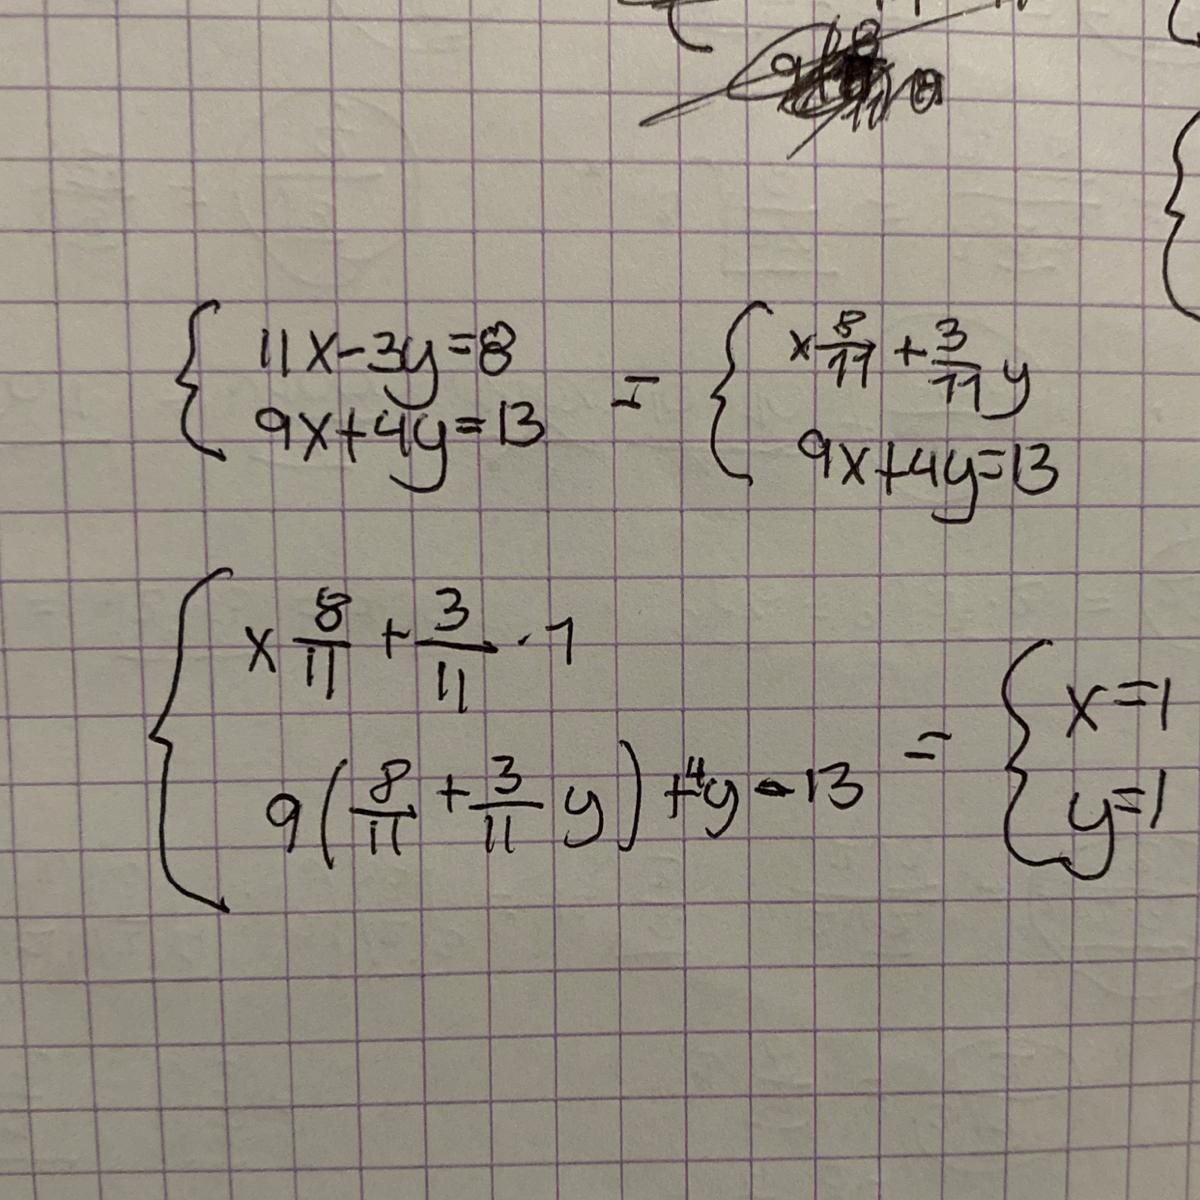 11x-3y=8
9x+4y=13
=
x 8/11 + 3/11 y
9x+4y=13
x 8/11 + 3/11 · 1
9(8/11 + 3/11 y) +4y - 13
=
x=1
y=1